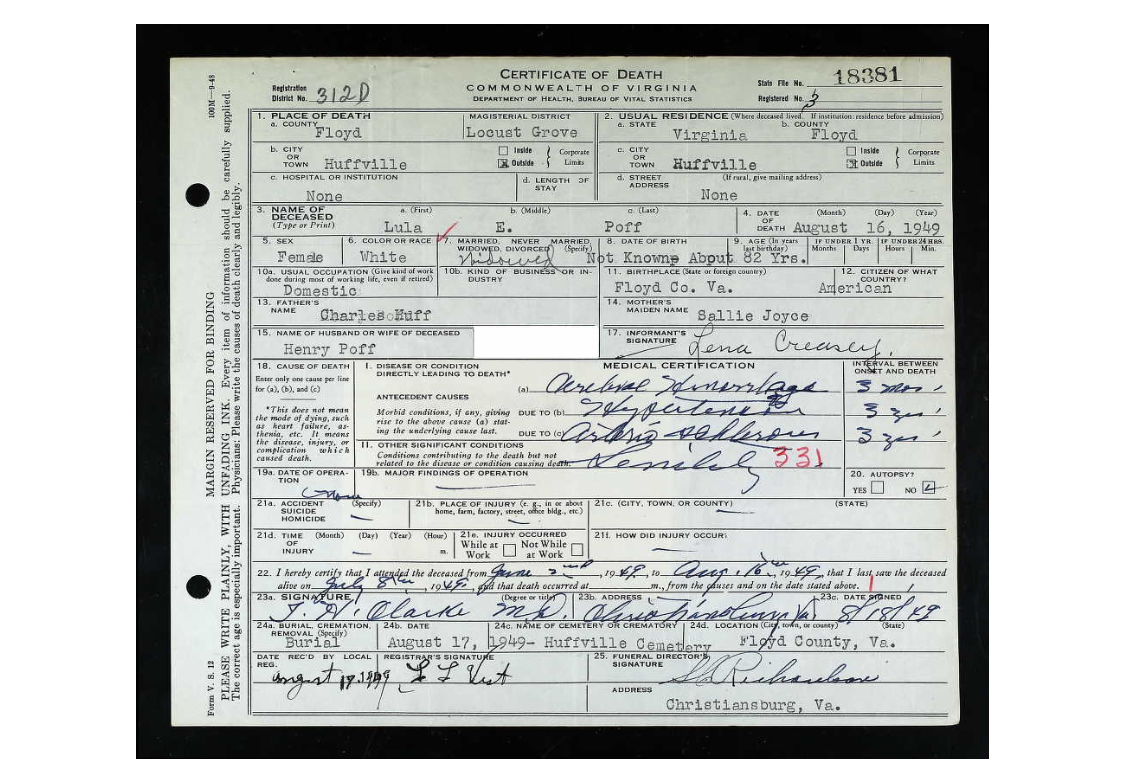 CERTIFICATE OF DEATH
COMMONWEALTH OF VIRGINIA
DEPARTMENT OF HEALTH, BUREAU OF VITAL STATISTICS
Registration District No. 312D
State File No. 18381
Registered No. 3
1. PLACE OF DEATH
a. COUNTY Floyd
MAGISTERIAL DISTRICT Locust Grove
2. USUAL RESIDENCE (Where deceased lived. If institution: residence before admission)
a. STATE Virginia
b. COUNTY Floyd
b. CITY OR TOWN Huffville
Inside Outside Corporate Limits
c. CITY OR TOWN Huffville
Inside Outside Corporate Limits
c. HOSPITAL OR INSTITUTION None
d. LENGTH OF STAY
d. STREET ADDRESS (If rural, give mailing address) None
3. NAME OF DECEASED (Type or Print)
a. (First) Lula
b. (Middle) E.
c. (Last) Poff
4. DATE OF DEATH (Month) (Day) (Year) August 16, 1949
5. SEX Female
6. COLOR OR RACE White
7. MARRIED, NEVER MARRIED, WIDOWED, DIVORCED (Specify) Widowed
8. DATE OF BIRTH Not Known
9. AGE (In years last birthday) About 82 Yrs.
IF UNDER 1 YR. Months Days
IF UNDER 24 HRS. Hours Min.
10a. USUAL OCCUPATION (Give kind of work done during most of working life, even if retired) Domestic
10b. KIND OF BUSINESS OR INDUSTRY
11. BIRTHPLACE (State or foreign country) Floyd Co. Va.
12. CITIZEN OF WHAT COUNTRY? American
13. FATHER'S NAME Charles Huff
14. MOTHER'S MAIDEN NAME Sallie Joyce
15. NAME OF HUSBAND OR WIFE OF DECEASED Henry Poff
17. INFORMANT'S SIGNATURE Lena Creasey
18. CAUSE OF DEATH
Enter only one cause per line for (a), (b), and (c)
*This does not mean the mode of dying, such as heart failure, asthenia, etc. It means the disease, injury, or complication which caused death.
MEDICAL CERTIFICATION
INTERVAL BETWEEN ONSET AND DEATH
I. DISEASE OR CONDITION DIRECTLY LEADING TO DEATH*
(a) Cerebral Hemorrhage 3 mos.
ANTECEDENT CAUSES
Morbid conditions, if any, giving rise to the above cause (a) stating the underlying cause last.
DUE TO (b) Hypertension 3 yrs.
DUE TO (c) Arterio Schlerosis 3 yrs.
II. OTHER SIGNIFICANT CONDITIONS
Conditions contributing to the death but not related to the disease or condition causing death. Senility 331
19a. DATE OF OPERATION None
19b. MAJOR FINDINGS OF OPERATION
20. AUTOPSY? YES NO
21a. ACCIDENT SUICIDE HOMICIDE (Specify)
21b. PLACE OF INJURY (e. g., in or about home, farm, factory, street, office bldg., etc.)
21c. (CITY, TOWN, OR COUNTY) (STATE)
21d. TIME OF INJURY (Month) (Day) (Year) (Hour) m.
21e. INJURY OCCURRED While at Work Not While at Work
21f. HOW DID INJURY OCCUR?
22. I hereby certify that I attended the deceased from June 2nd, 1949, to Aug. 16th, 1949, that I last saw the deceased
alive on July 8th, 1949, and that death occurred at m., from the causes and on the date stated above.
23a. SIGNATURE (Degree or title) T. H. Clarke M.D.
23b. ADDRESS Christiansburg Va
23c. DATE SIGNED 8/18/49
24a. BURIAL, CREMATION, REMOVAL (Specify) Burial
24b. DATE August 17, 1949-
24c. NAME OF CEMETERY OR CREMATORY Huffville Cemetery
24d. LOCATION (City, town, or county) (State) Floyd County, Va.
DATE REC'D BY LOCAL REG. August 19, 1949
REGISTRAR'S SIGNATURE L L Vest
25. FUNERAL DIRECTOR'S SIGNATURE Richardson
ADDRESS Christiansburg, Va.
Form V. S. 12
100M—9-48
MARGIN RESERVED FOR BINDING
PLEASE WRITE PLAINLY, WITH UNFADING INK. Every item of information should be carefully supplied.
The correct age is especially important. Physicians: Please write the causes of death clearly and legibly.